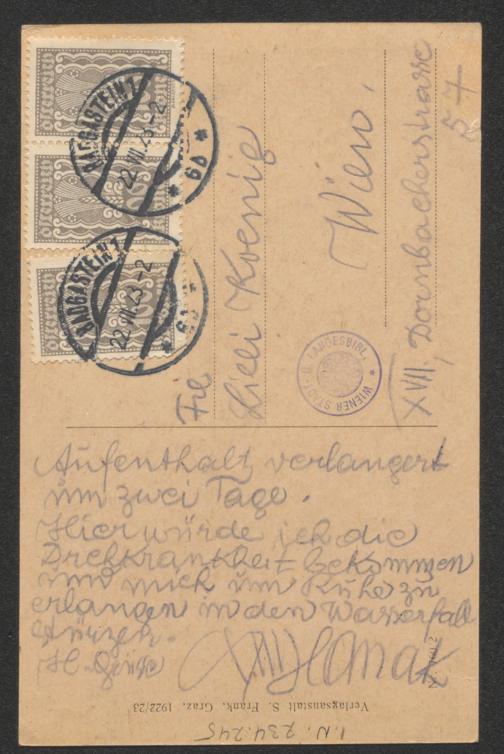 BADGASTEIN 1
22.VII.23-2
* 6d *
BADGASTEIN 1
22.VII.23-2
Frl
Lilli Koenig
Wien.
XVII, Dornbacherstrasse
57
WIENER STADT- U. LANDESBIBL. *
Aufenthalt verlängert
um zwei Tage.
Hier würde ich die
Drehkrankheit bekommen
und mich um Ruhe zu
erlangen in den Wasserfall
stürzen.
H. Grüße
AHanak
Verlagsanstalt S. Frank, Graz, 1922/23
I.N. 234.245